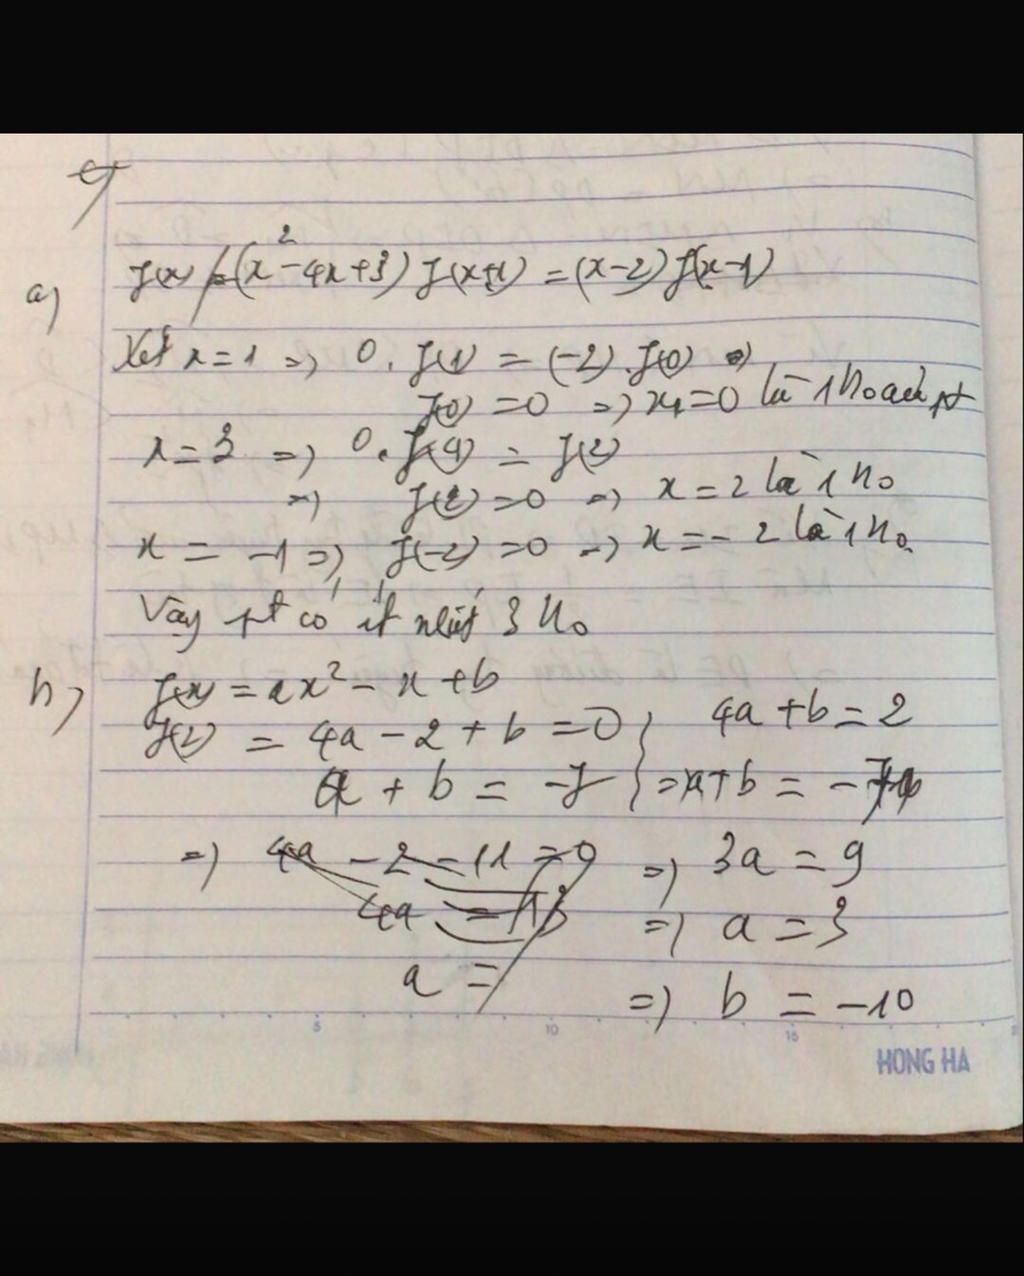 a) f(x) (x²-4x+3) f(x+1) = (x-2) f(x-1)
Xét x=1 => 0. f(1) = (-2).f(0) =>
f(0) =0 => x=0 là 1 no
x=3 => 0. f(4) = f(2)
=> f(2) =0 => x=2 là 1 no
x = -1 => f(-2) =0 => x=-2 là 1 no.
Vậy pt có ít nhất 3 no
b) f(x) = ax²-x+b
f(2) = 4a-2+b =0 } 4a+b=2
a+b = -7 } => a+b = -7
=> 4a -2-11=0 => 3a=9
4a = 13 => a=3
a = => b = -10
5 10 15
HONG HA